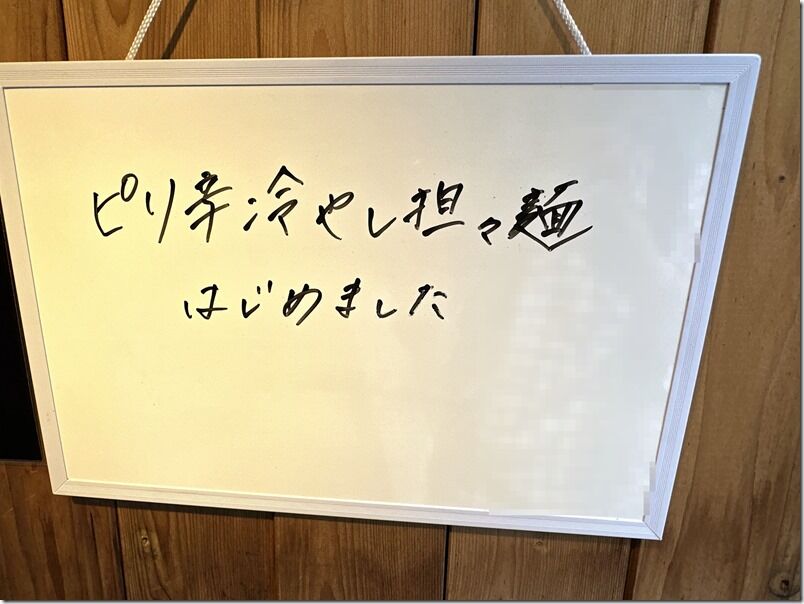 ピリ辛冷やし担々麺
はじめました